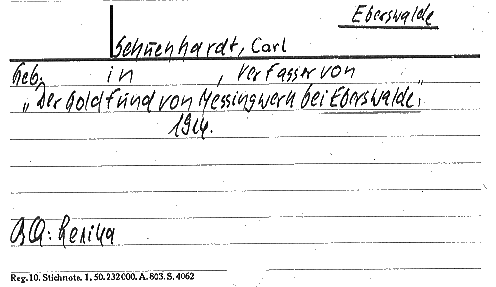 Eberswalde
Schuchhardt, Carl
Geb. in , Verfasser von
„Der Goldfund von Messingwerk bei Eberswalde",
1914.
Reg. 10. Stichnote. 1. 50. 232000. A. 803. S. 4062